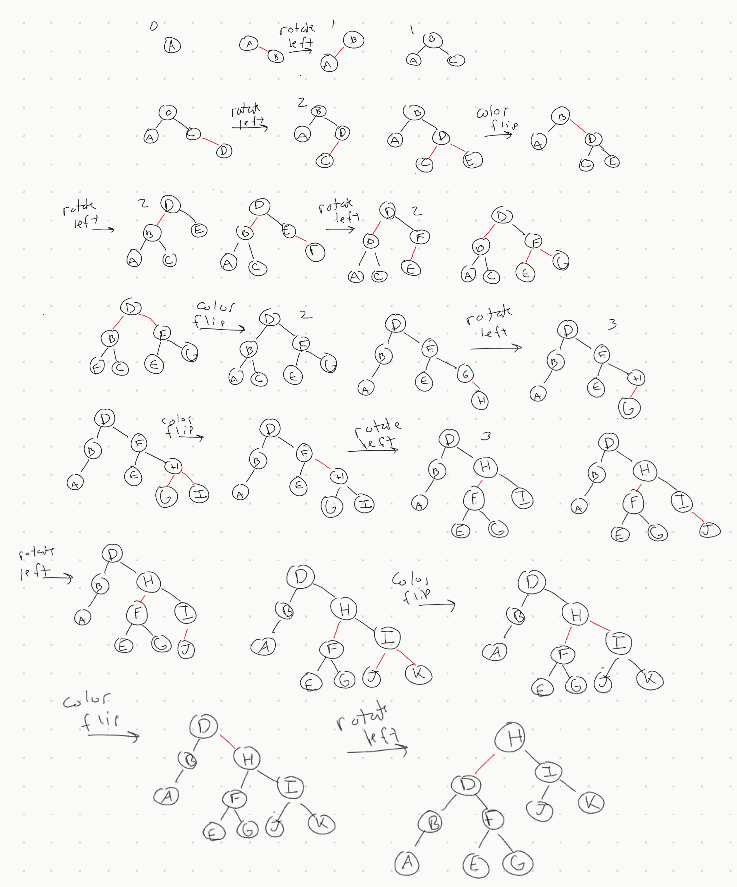 0 A A B rotate left 1 B A 1 D A C
D A C D rotate left 2 B A D C B A D C E color flip B A D C C
rotate left 2 D B E A C D B E A C F rotate left D 2 D F A C E D D F A C E G
D B F F C E G color flip D 2 B F A C E G D B F A E G H rotate left D 3 B F A E H G
D B F A E H G I color flip D B F A E H G I rotate left D 3 B H A F I E G D B H A F I E G J
rotate left D B H A F I E G J D B H A F I E G J K color flip D B H A F I E G J K
color flip D B H A F I E G J K rotate left H D I B F J K A E G